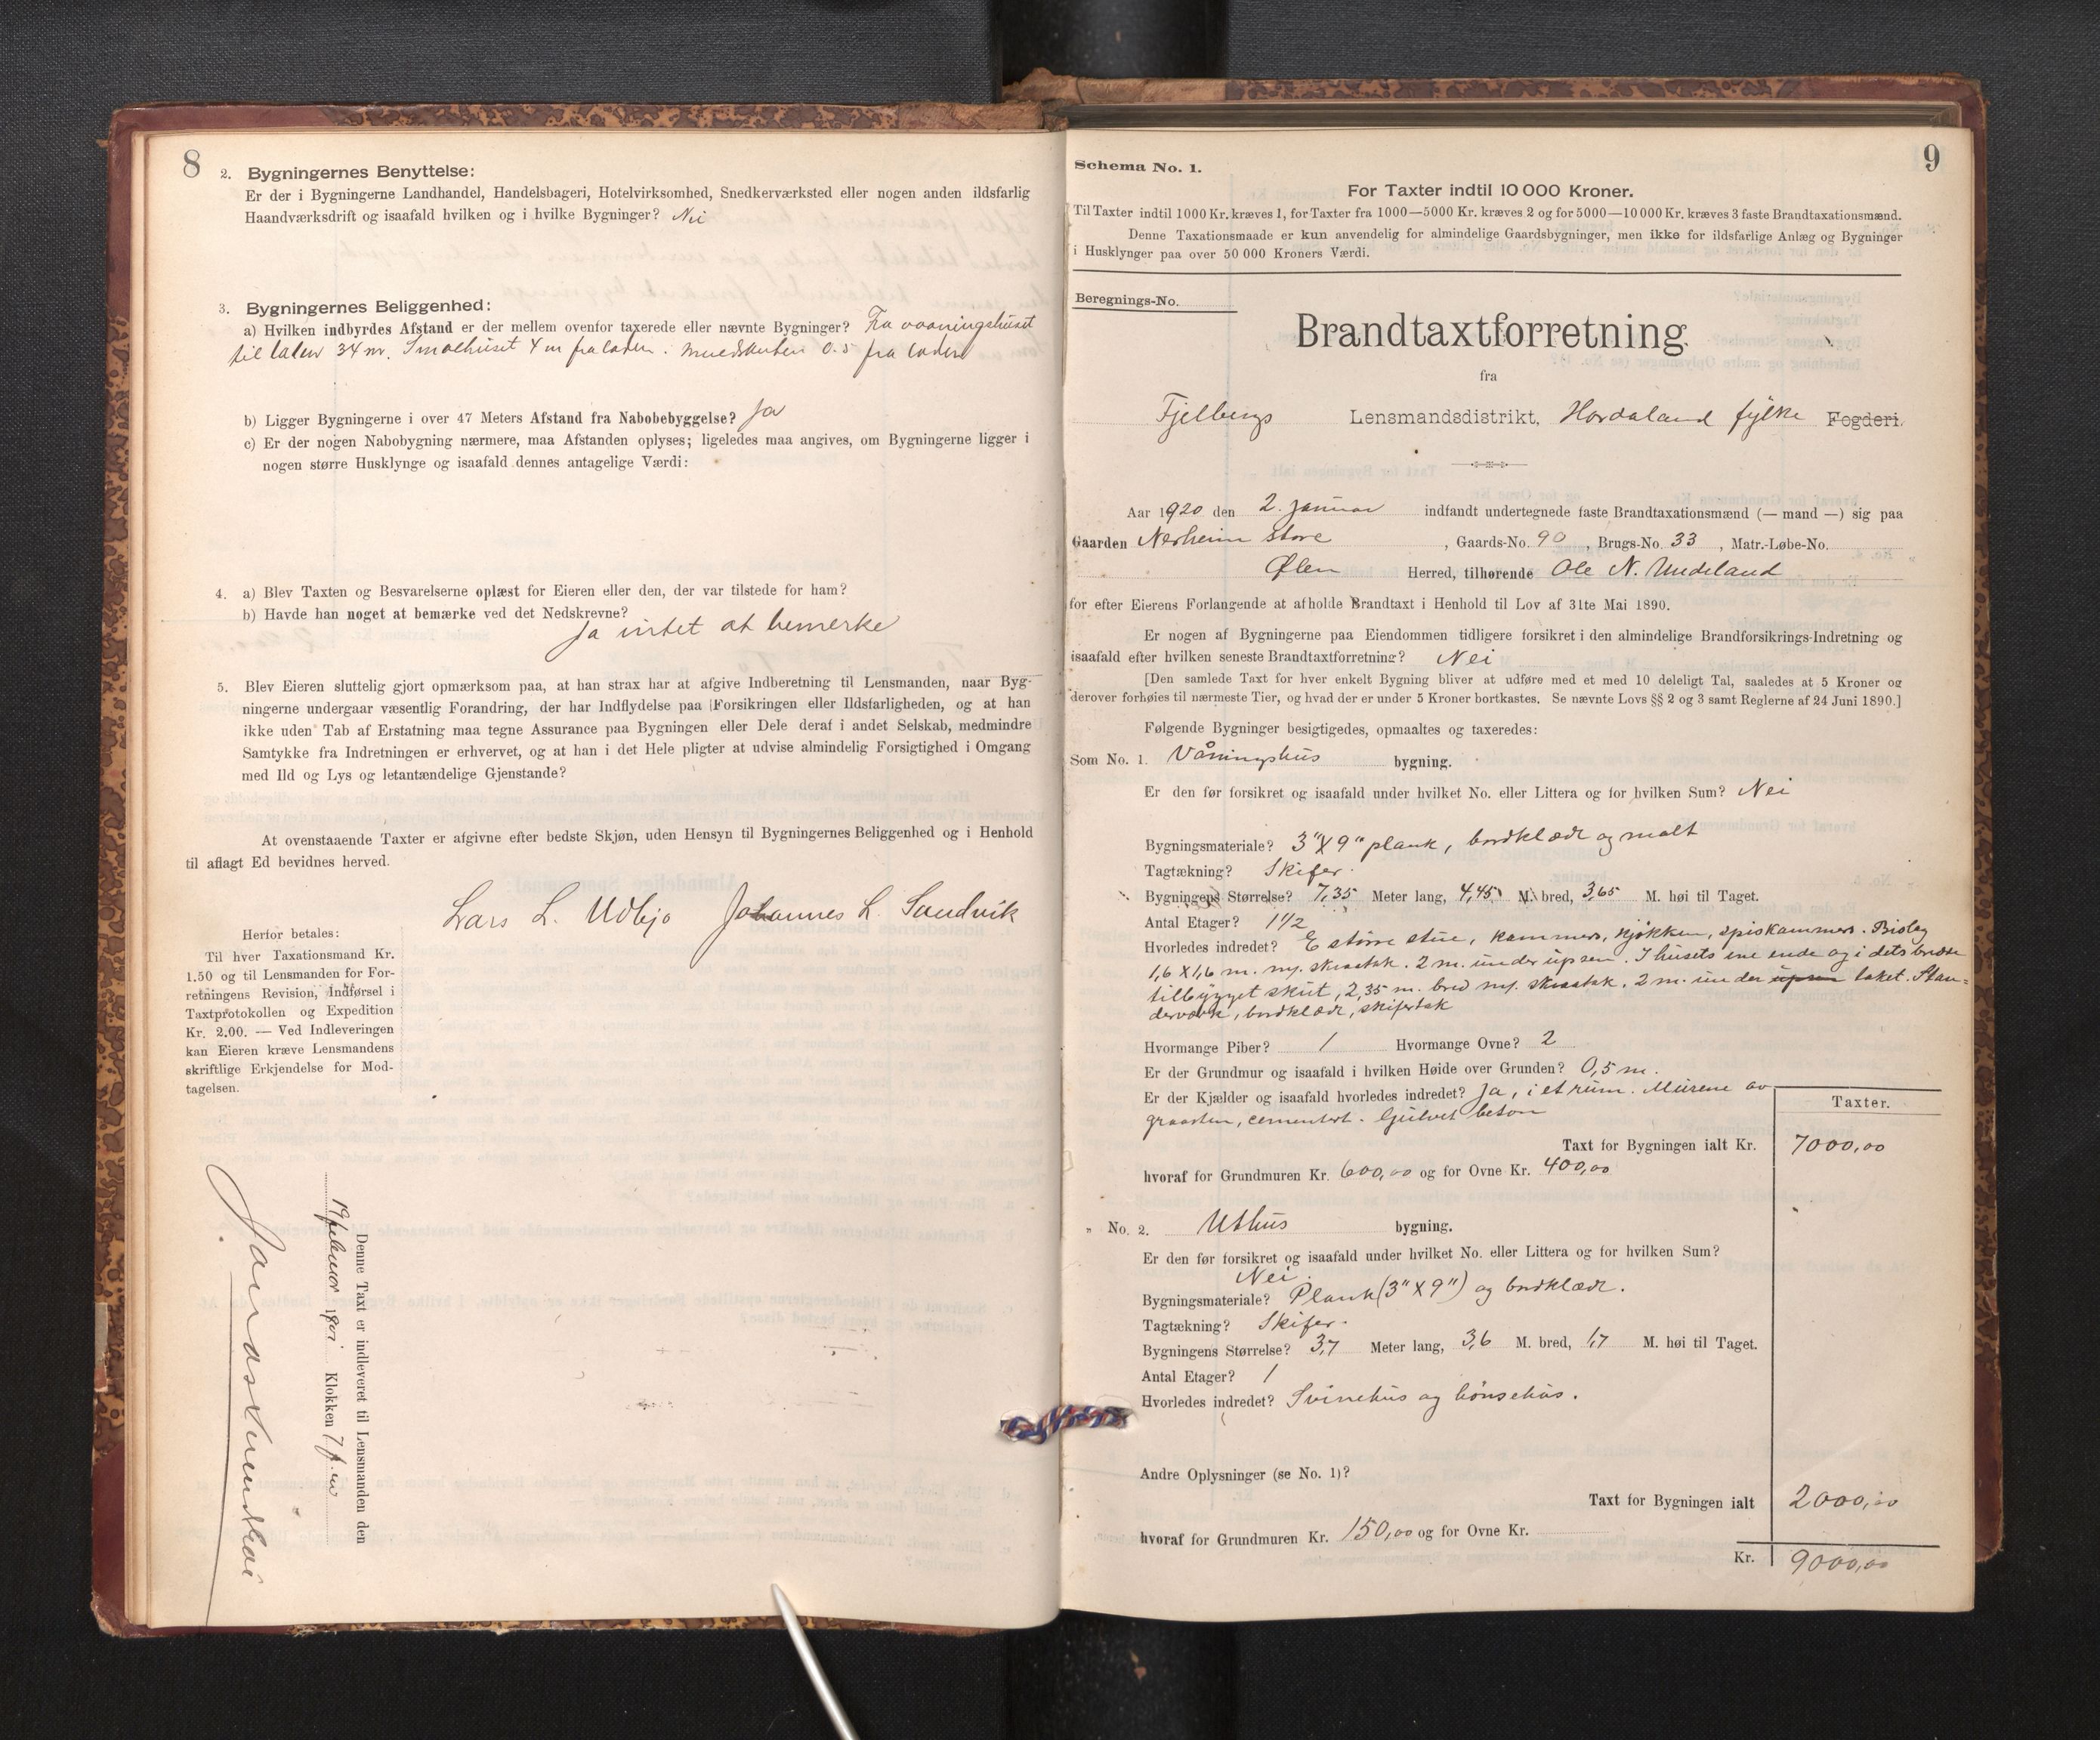 8
2. Bygningernes Benyttelse:
Er der i Bygningerne Landhandel, Handelsbageri, Hotelvirksomhed, Snedkerværksted eller nogen anden ildsfarlig
Haandværksdrift og isaafald hvilken og i hvilke Bygninger? Nei
3. Bygningernes Beliggenhed:
a) Hvilken indbyrdes Afstand er der mellem ovenfor taxerede eller nævnte Bygninger? Fra vaaningshuset
til laden 34 m. Smalehuset 4 m fra laden. 0.5 fra laden
b) Ligger Bygningerne i over 47 Meters Afstand fra Nabobebyggelse? Ja
c) Er der nogen Nabobygning nærmere, maa Afstanden oplyses; ligeledes maa angives, om Bygningerne ligger i
nogen større Husklynge og isaafald dennes antagelige Værdi:
4. a) Blev Taxten og Besvarelserne oplæst for Eieren eller den, der var tilstede for ham?
b) Havde han noget at bemærke ved det Nedskrevne?
Ja intet at bemerke
5. Blev Eieren sluttelig gjort opmærksom paa, at han strax har at afgive Indberetning til Lensmanden, naar Byg-
ningerne undergaar væsentlig Forandring, der har Indflydelse paa Forsikringen eller Ildsfarligheden, og at han
ikke uden Tab af Erstatning maa tegne Assurance paa Bygningen eller Dele deraf i andet Selskab, medmindre
Samtykke fra Indretningen er erhvervet, og at han i det Hele pligter at udvise almindelig Forsigtighed i Omgang
med Ild og Lys og letantændelige Gjenstande?
At ovenstaaende Taxter er afgivne efter bedste Skjøn, uden Hensyn til Bygningernes Beliggenhed og i Henhold
til aflagt Ed bevidnes herved.
Lars L. Udbjo Johannes L. Sandvik
Herfor betales:
Til hver Taxationsmand Kr.
1.50 og til Lensmanden for For-
retningens Revision, Indførsel i
Taxtprotokollen og Expedition
Kr. 2.00. — Ved Indleveringen
kan Eieren kræve Lensmandens
skriftlige Erkjendelse for Mod-
tagelsen.
Denne Taxt er indleveret til Lensmanden den
19 februar Klokken 7 f.m
9
Schema No. 1.
For Taxter indtil 10 000 Kroner.
Til Taxter indtil 1000 Kr. kræves 1, for Taxter fra 1000—5000 Kr. kræves 2 og for 5000—10 000 Kr. kræves 3 faste Brandtaxationsmænd.
Denne Taxationsmaade er kun anvendelig for almindelige Gaardsbygninger, men ikke for ildsfarlige Anlæg og Bygninger
i Husklynger paa over 50 000 Kroners Værdi.
Beregnings-No.
Brandtaxtforretning
fra
Fjelbergs Lensmandsdistrikt, Hordaland fylke Fogderi.
Aar 1920 den 2. januar indfandt undertegnede faste Brandtaxationsmænd (— mand —) sig paa
Gaarden Nerheim store, Gaards-No. 90, Brugs-No. 33, Matr.-Løbe-No.
Ølen Herred, tilhørende Ole N. Undeland
for efter Eierens Forlangende at afholde Brandtaxt i Henhold til Lov af 31te Mai 1890.
Er nogen af Bygningerne paa Eiendommen tidligere forsikret i den almindelige Brandforsikrings-Indretning og
isaafald efter hvilken seneste Brandtaxtforretning? Nei
[Den samlede Taxt for hver enkelt Bygning bliver at udføre med et med 10 deleligt Tal, saaledes at 5 Kroner og
derover forhøies til nærmeste Tier, og hvad der er under 5 Kroner bortkastes. Se nævnte Lovs §§ 2 og 3 samt Reglerne af 24 Juni 1890.]
Følgende Bygninger besigtigedes, opmaaltes og taxeredes:
Som No. 1. Våningshus bygning.
Er den før forsikret og isaafald under hvilket No. eller Littera og for hvilken Sum? Nei
Bygningsmateriale? 3"X9" plank, bordklædt og malt
Tagtækning? Skifer.
Bygningens Størrelse? 7,35 Meter lang, 4,45 M. bred, 3,65 M. høi til Taget.
Antal Etager? 1 1/2
Hvorledes indredet? E større stue, kammers, kjøkken, spiskammers. Bislag
1,6 X 1,6 m. m. skraatak. 2 m. under upsen. I husets ene ende og i dets bredde
tilbygget skut, 2,35 m. bred m. skraatak. 2 m. under upsen taket. Stan-
derverk, bordklædt, skifertak
Hvormange Piber? 1 Hvormange Ovne? 2
Er der Grundmur og isaafald i hvilken Høide over Grunden? 0,5 m.
Er der Kjælder og isaafald hvorledes indredet? Ja, i et rum. Murene av
graasten, cementert. Gulvet beton
Taxter.
Taxt for Bygningen ialt Kr. 7000,00
hvoraf for Grundmuren Kr. 600,00 og for Ovne Kr. 400,00
" No. 2. Uthus bygning.
Er den før forsikret og isaafald under hvilket No. eller Littera og for hvilken Sum?
Nei.
Bygningsmateriale? Plank (3"X9") og bordklædt.
Tagtækning? Skifer.
Bygningens Størrelse? 3,7 Meter lang, 3,6 M. bred, 1,7 M. høi til Taget.
Antal Etager? 1
Hvorledes indredet? Svinehus og hönsehus.
Andre Oplysninger (se No. 1)?
Taxt for Bygningen ialt 2000,00
hvoraf for Grundmuren Kr. 150,00 og for Ovne Kr.
Kr. 9000,00